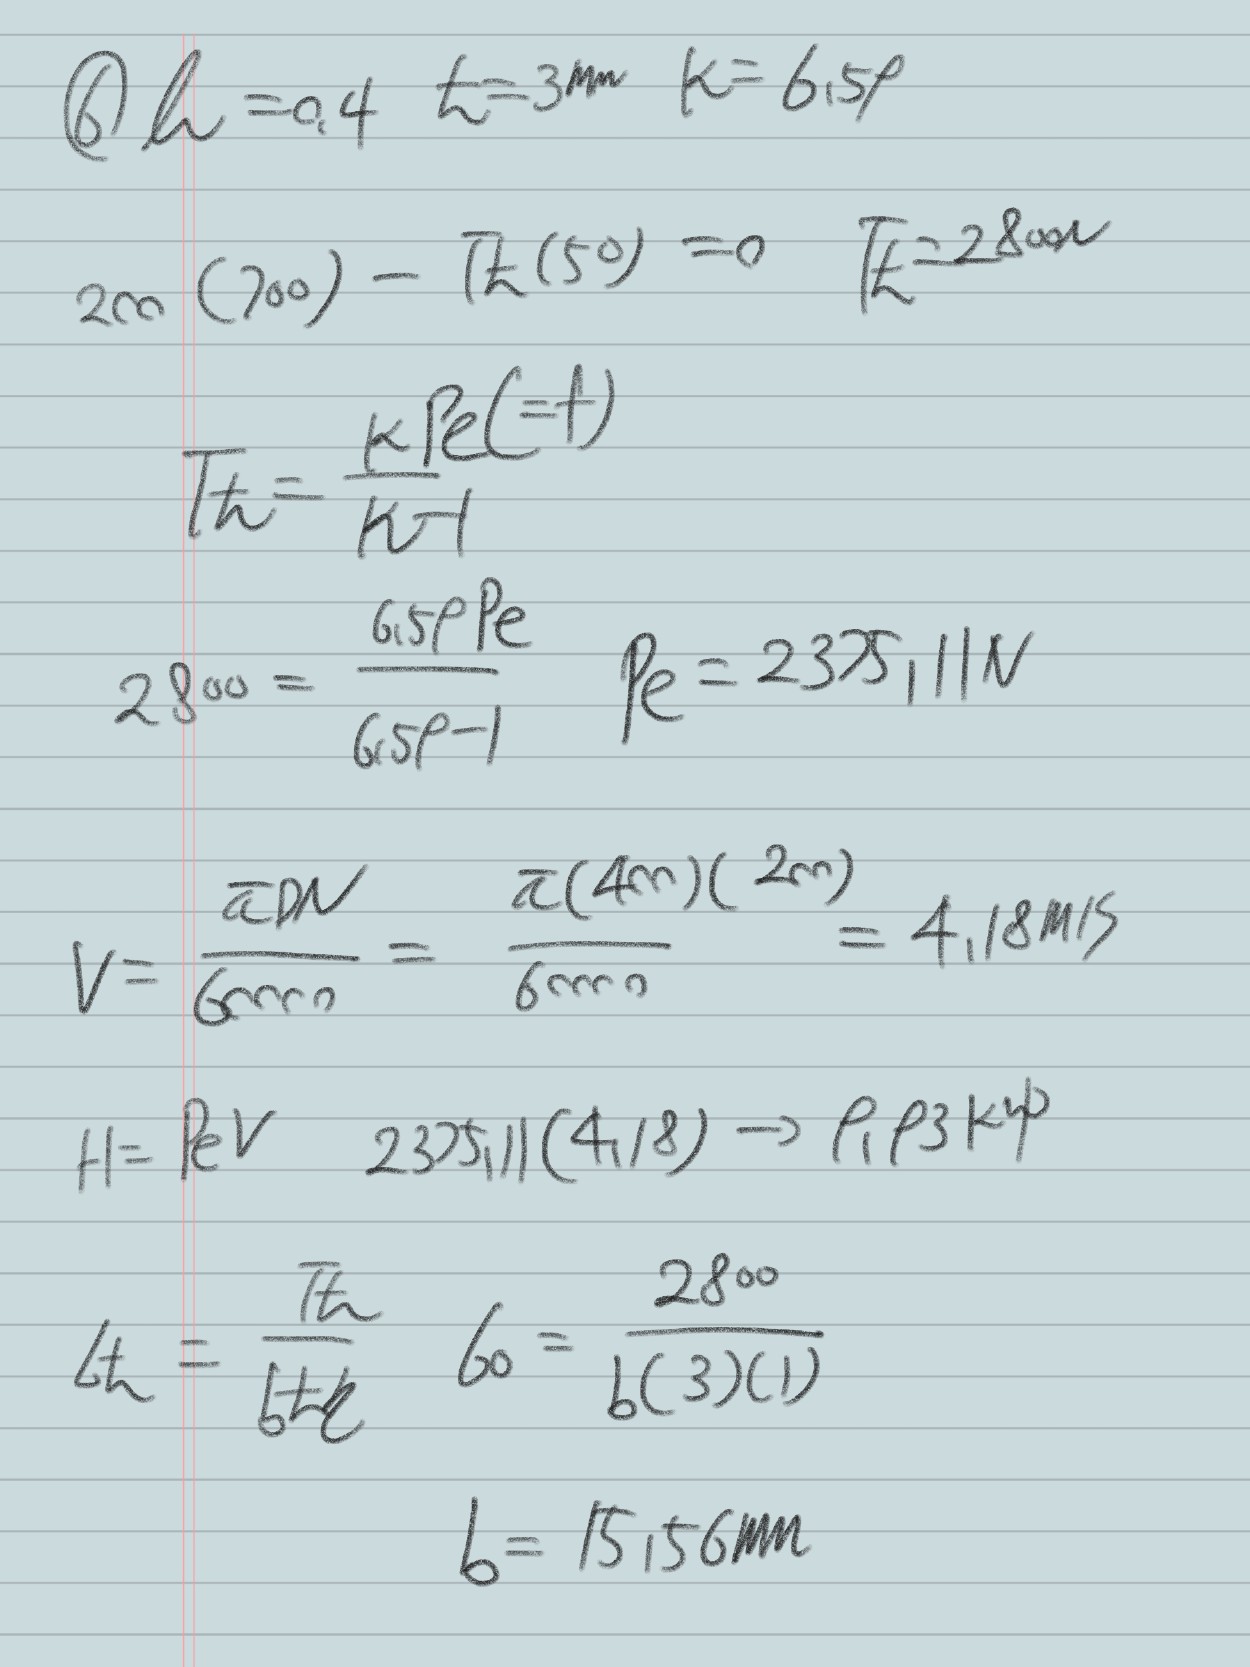 ⑥ μ=0.4 t=3mm K=6.59
200(700) - Tt(50) = 0 Tt=2800N
Tt = KPe(=f) / K-1
2800 = 6.59Pe / 6.59-1 Pe = 2375.11N
V = πDN / 60000 = π(400)(200) / 60000 = 4.18m/s
H= PeV 2375.11(4.18) → 9.93kW
σt = Tt / btη 60 = 2800 / b(3)(1)
b= 15.56mm